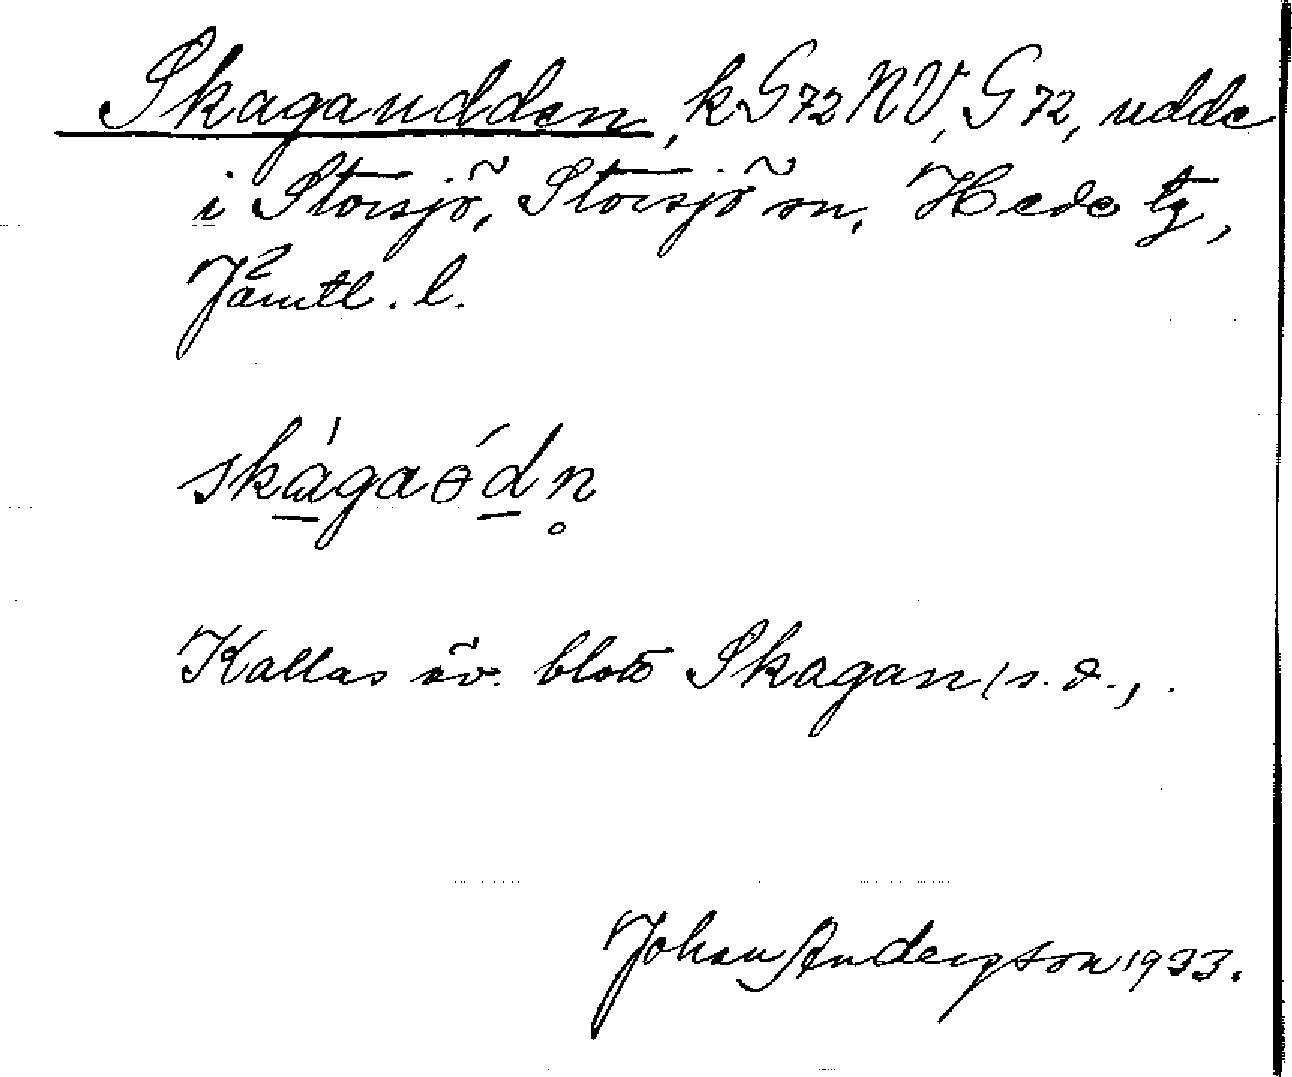 Skagaudden, k G72NV, G72, udde
i Storsjö, Storsjö sn, Hede tg,
Jämtl. l.
skàgaɵ́dn̥
Kallas äv. blott Skagan (s.d.).
Johan Anderson 1933.